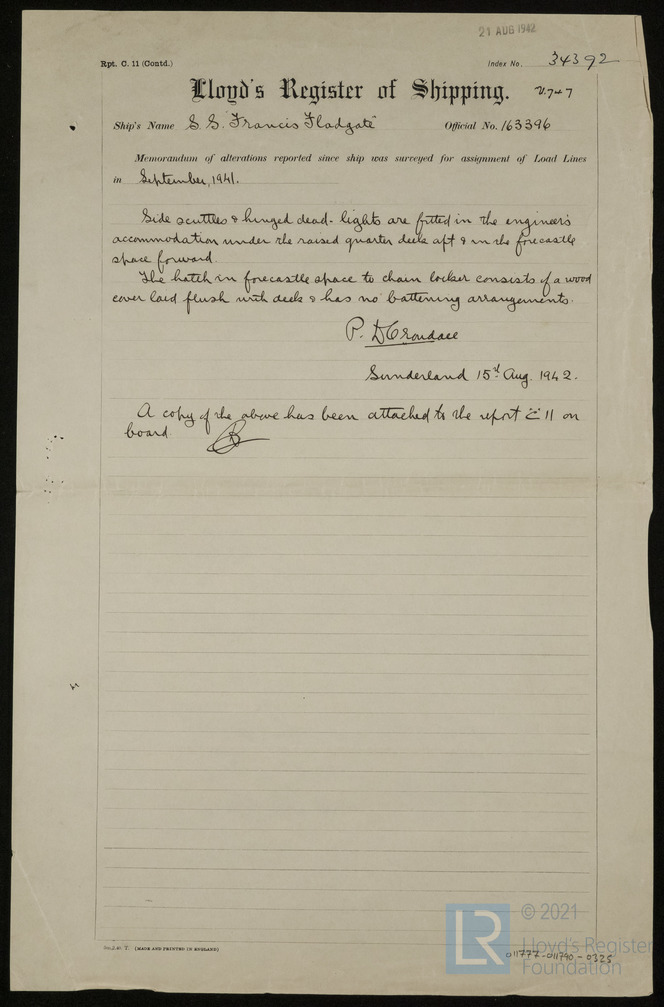 21 AUG 1942
Rpt. C. 11 (Contd.)
Index No. 34392
Lloyd's Register of Shipping.
Ship's Name S.S. "Francis Fladgate"
Official No. 163396
Memorandum of alterations reported since ship was surveyed for assignment of Load Lines
in September, 1941.
Side scuttles & hinged dead-lights are fitted in the engineers
accommodation under the raised quarter deck aft & in the forecastle
space forward.
The hatch in forecastle space to chain locker consists of a wood
cover laid flush with deck & has no battening arrangements.
P. D Crondace
Sunderland 15th Aug. 1942.
A copy of the above has been attached to the report C 11 on
board.
(MADE AND PRINTED IN ENGLAND)
LR
© 2021
Lloyd's Register
Foundation
011777-011790-0325